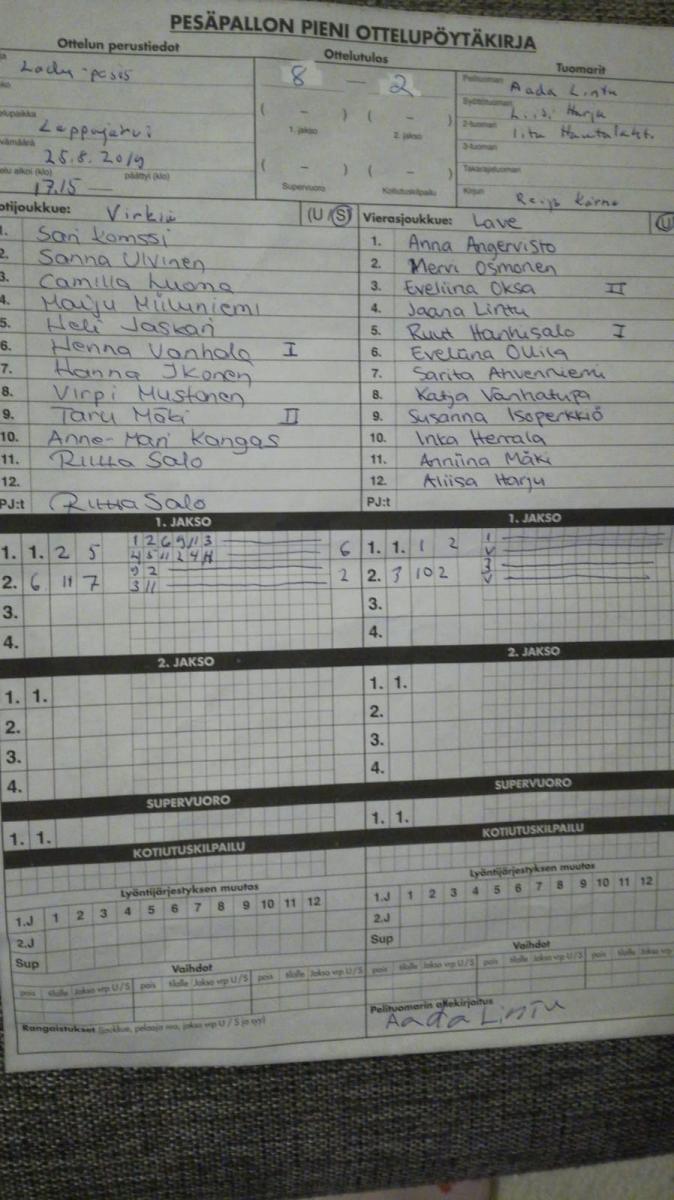 PESÄPALLON PIENI OTTELUPÖYTÄKIRJA
Ottelun perustiedot
Lady-pesis
Lappajärvi
25.8.2019
elu alkoi (klo) päättyi (klo)
17.15 —
Ottelutulos
8 — 2
( – ) ( – )
1. jakso 2. jakso
( – ) ( – )
Supervuoro Kotiutuskilpailu
Tuomarit
Pelituomari
Aada Lintu
Syöttötuomari
Harju
2-tuomari
3-tuomari
Takarajatuomari
Kirjuri
otijoukkue: Virkiä (U/S)
1. Sari Komssi
2. Sanna Ulvinen
3. Camilla Luoma
4. Marju Miiluniemi
5. Heli Jaskari
6. Henna Vanhala I
7. Hanna Ikonen
8. Virpi Mustonen
9. Taru Mäki II
10. Anne-Mari Kangas
11. Riitta Salo
12.
PJ:t Riitta Salo
Vierasjoukkue: Lave (U
1. Anna Angervisto
2. Mervi Osmonen
3. Eveliina Oksa II
4. Jaana Lintu
5. Ruut Hanhisalo I
6. Eveliina Ollila
7. Sarita Ahvenniemi
8. Katja Vanhatupa
9. Susanna Isoperkkiö
10. Inka Herrala
11. Anniina Mäki
12. Aliisa Harju
PJ:t
1. JAKSO
1. 1. 2 5 1 2 6 9 11 3 6
4 5 11 2 4 11
2. 6 11 7 9 2 2
3 11
3.
4.
1. JAKSO
1. 1. 1 2 1
V
2. 3 10 2 3
V
3.
4.
2. JAKSO
1. 1.
2.
3.
4.
2. JAKSO
1. 1.
2.
3.
4.
SUPERVUORO
1. 1.
SUPERVUORO
1. 1.
KOTIUTUSKILPAILU
KOTIUTUSKILPAILU
Lyöntijärjestyksen muutos
1.J 1 2 3 4 5 6 7 8 9 10 11 12
2.J
Sup
Lyöntijärjestyksen muutos
1.J 1 2 3 4 5 6 7 8 9 10 11 12
2.J
Sup
Vaihdot
pois tilalle Jakso vrp U/S pois tilalle Jakso vrp U/S pois tilalle Jakso vrp U/S
Vaihdot
pois tilalle Jakso vrp U/S pois tilalle Jakso vrp U/S pois tilalle Jakso vrp U/S
Rangaistukset (joukkue, pelaaja nro, jakso vrp U / S ja syy)
Pelituomarin allekirjoitus
Aada Lintu